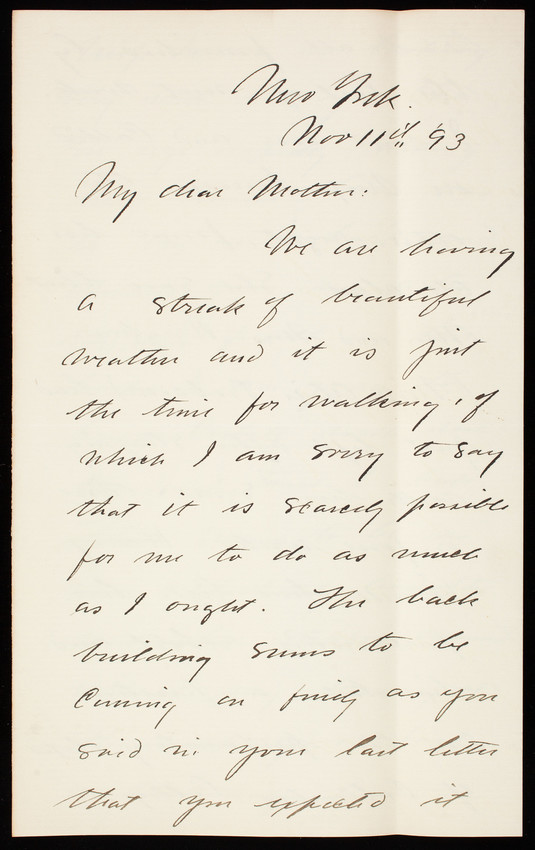 New York.
Nov 11th '93
My dear Mother:
We are having
a streak of beautiful
weather and it is just
the time for walking, of
which I am sorry to say
that it is scarcely possible
for me to do as much
as I ought. The back
building seems to be
coming on finely as you
said in your last letter
that you expected it